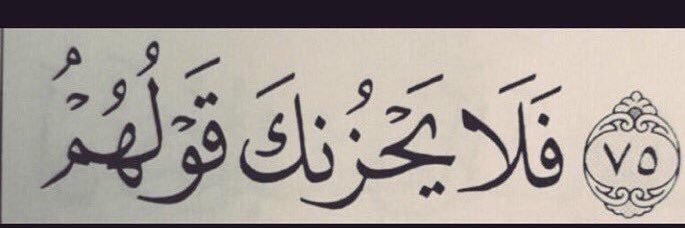 ٧٥ فَلَا يَحْزُنكَ قَوْلُهُمْ